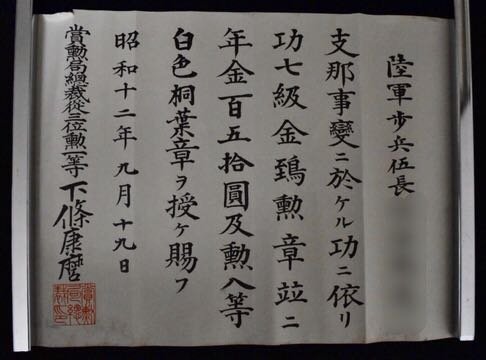 陸軍歩兵伍長
支那事變ニ於ケル功ニ依リ
功七級金鵄勲章竝ニ
年金百五拾圓及勲八等
白色桐葉章ヲ授ケ賜フ
昭和十二年九月十九日
賞勲局總裁從三位勲一等下條康麿